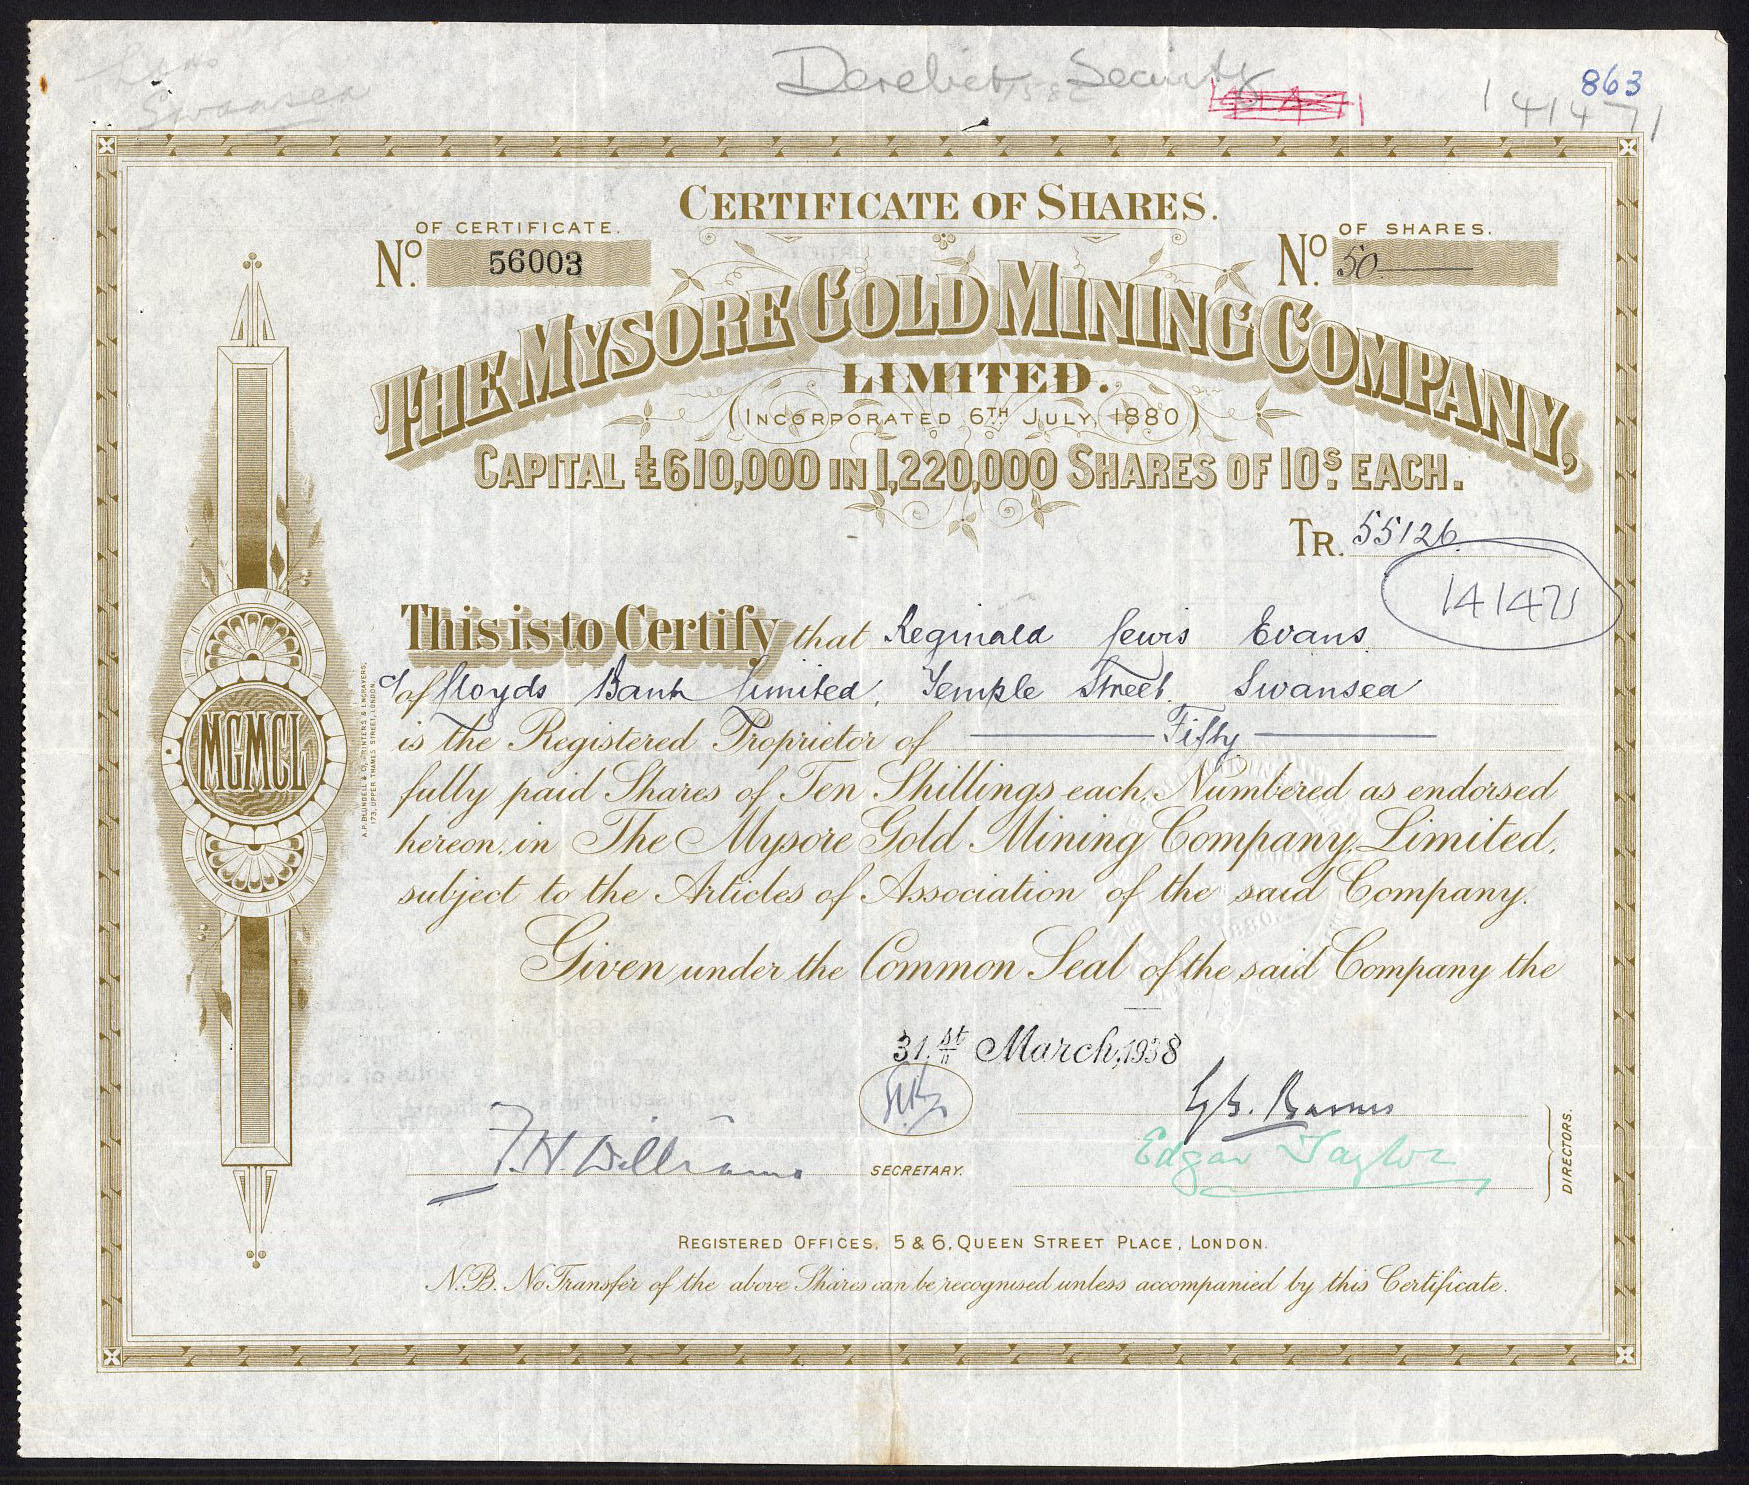 Swansea
Security
863
141471
CERTIFICATE OF SHARES.
No. OF CERTIFICATE. 56003
No. OF SHARES. 50
THE MYSORE GOLD MINING COMPANY,
LIMITED.
(INCORPORATED 6TH JULY, 1880)
CAPITAL £610,000 IN 1,220,000 SHARES OF 10s. EACH.
TR. 55126
141471
This is to Certify that Reginald Lewis Evans
c/ of Lloyds Bank Limited, Temple Street, Swansea
is the Registered Proprietor of Fifty
fully paid Shares of Ten Shillings each, Numbered as endorsed
hereon, in The Mysore Gold Mining Company, Limited,
subject to the Articles of Association of the said Company.
Given under the Common Seal of the said Company the
31st March, 1938
F.H. Williams SECRETARY.
Edgar Taylor
DIRECTORS.
MGMCL
A.P. BLUNDELL & CO, PRINTERS & ENGRAVERS,
173, UPPER THAMES STREET, LONDON.
REGISTERED OFFICES, 5 & 6, QUEEN STREET PLACE, LONDON.
N.B. No Transfer of the above Shares can be recognised unless accompanied by this Certificate.